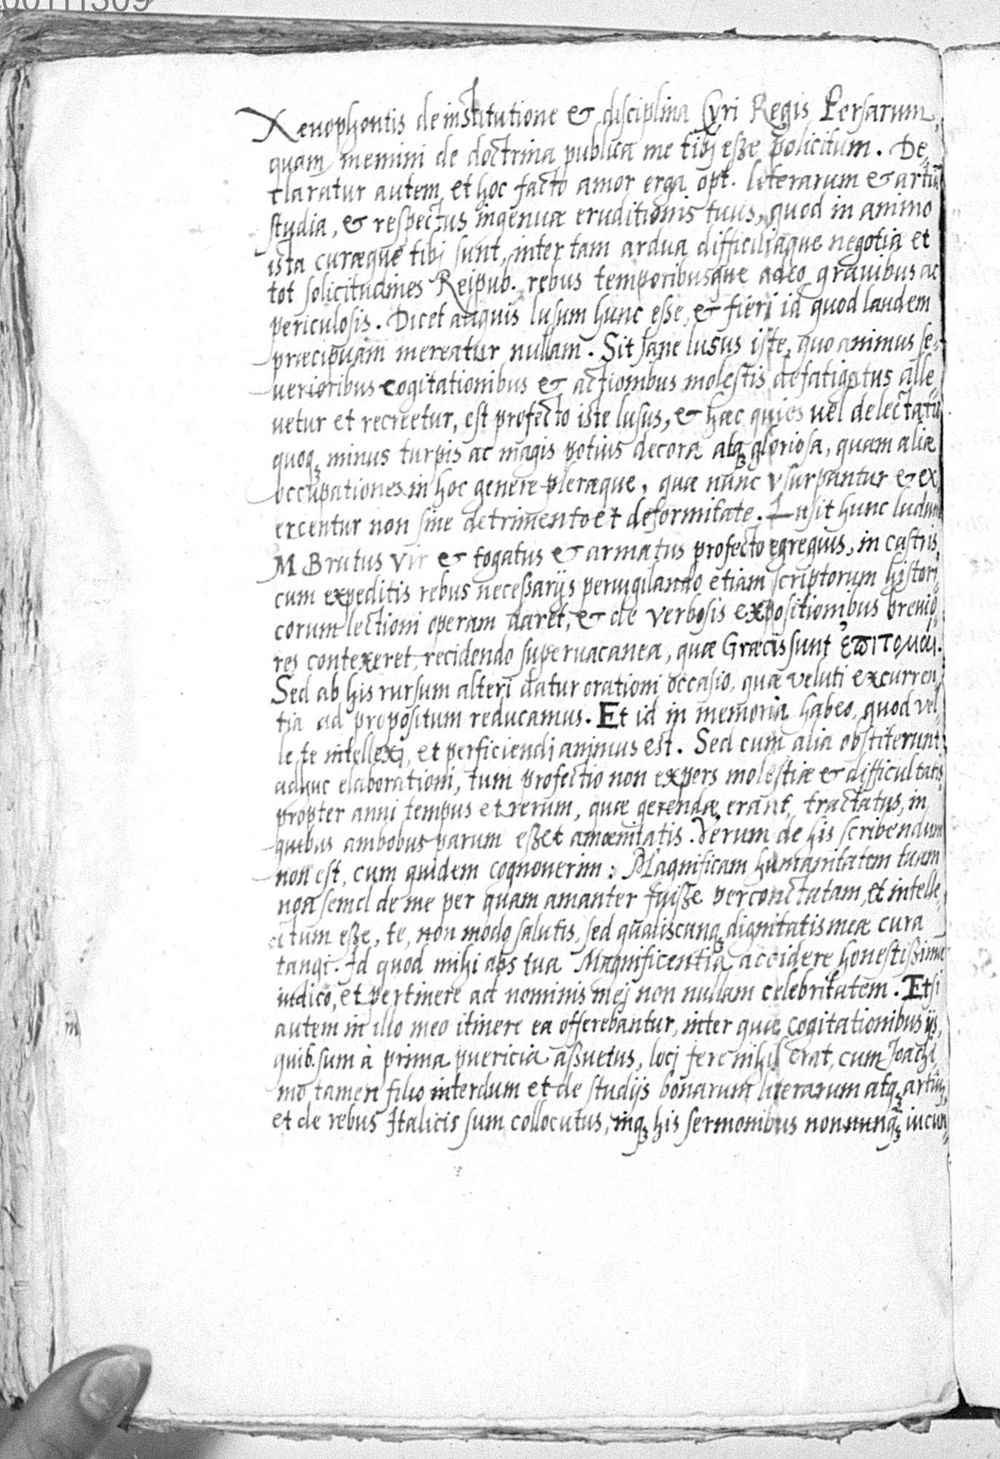 00111309
Xenophontis de institutione & disciplina Cyri Regis Persarum,
quam memini de doctrina publica me tibi esse policitum. De
claratur autem et hoc facto amor erga opt. literarum & artiū
studia, & respectus ingenuæ eruditionis tuus, quod in animo
ista curæque tibi sunt, inter tam ardua difficiliaque negotia et
tot solicitudines Reipub. rebus temporibusque adeo gravibus ac
periculosis. Dicet aliquis lusum hunc esse, & fieri id quod laudem
præcipuam mereatur nullam. Sit sane lusus iste, quo animus se,
verioribus cogitationibus & actionibus molestis defatigatus alle,
vetur et recreetur, est profecto iste lusus, & hæc quies vel delectatio
quoq; minus turpis ac magis potius decora atq; gloriosa, quam aliæ
occupationes in hoc genere pleræque, quæ nunc usurpantur & ex,
ercentur non sine detrimento et deformitate. Lusit hunc ludum
M Brutus vir & togatus & armatus profecto egregius, in castris,
cum expeditis rebus necessarijs pervigilando etiam scriptorum histori,
corum lectioni operam daret, & de verbosis expositionibus brevio,
res contexeret, recidendo supervacanea, quæ Græcis sunt ἐπιτομαί.
Sed ab his rursum alteri datur orationi occasio, quæ veluti excurren,
tia ad propositum reducamus. Et id in memoria habeo, quod vel,
le te intellexi, et perficiendi animus est. Sed cum alia obstiterunt
adhuc elaborationi, tum profectio non expers molestiæ & difficultatis
propter anni tempus et rerum, quæ gerendæ erant, tractatus, in
quibus ambobus parum esset amœnitatis. Verum de his scribendum
non est, cum quidem cognoverim: Magnificam humanitatem tuam
non semel de me per quam amanter fuisse percontatam, et intelle,
ctum esse, te, non modo salutis, sed qualiscunq; dignitatis meæ cura
tangi. Id quod mihi abs tua Magnificentia accidere honestissimum
iudico, et pertinere ad nominis mei non nullam celebritatem. Etsi
autem in illo meo itinere ea offerebantur, inter quæ cogitationibus ijs,
quib. sum à prima puericia assuetus, loci fere nihil erat, cum Joachi
mo tamen filio interdum et de studijs bonarum literarum atq; artiū,
et de rebus Italicis sum collocutus, inq; his sermonibus nonnunq; iucun,